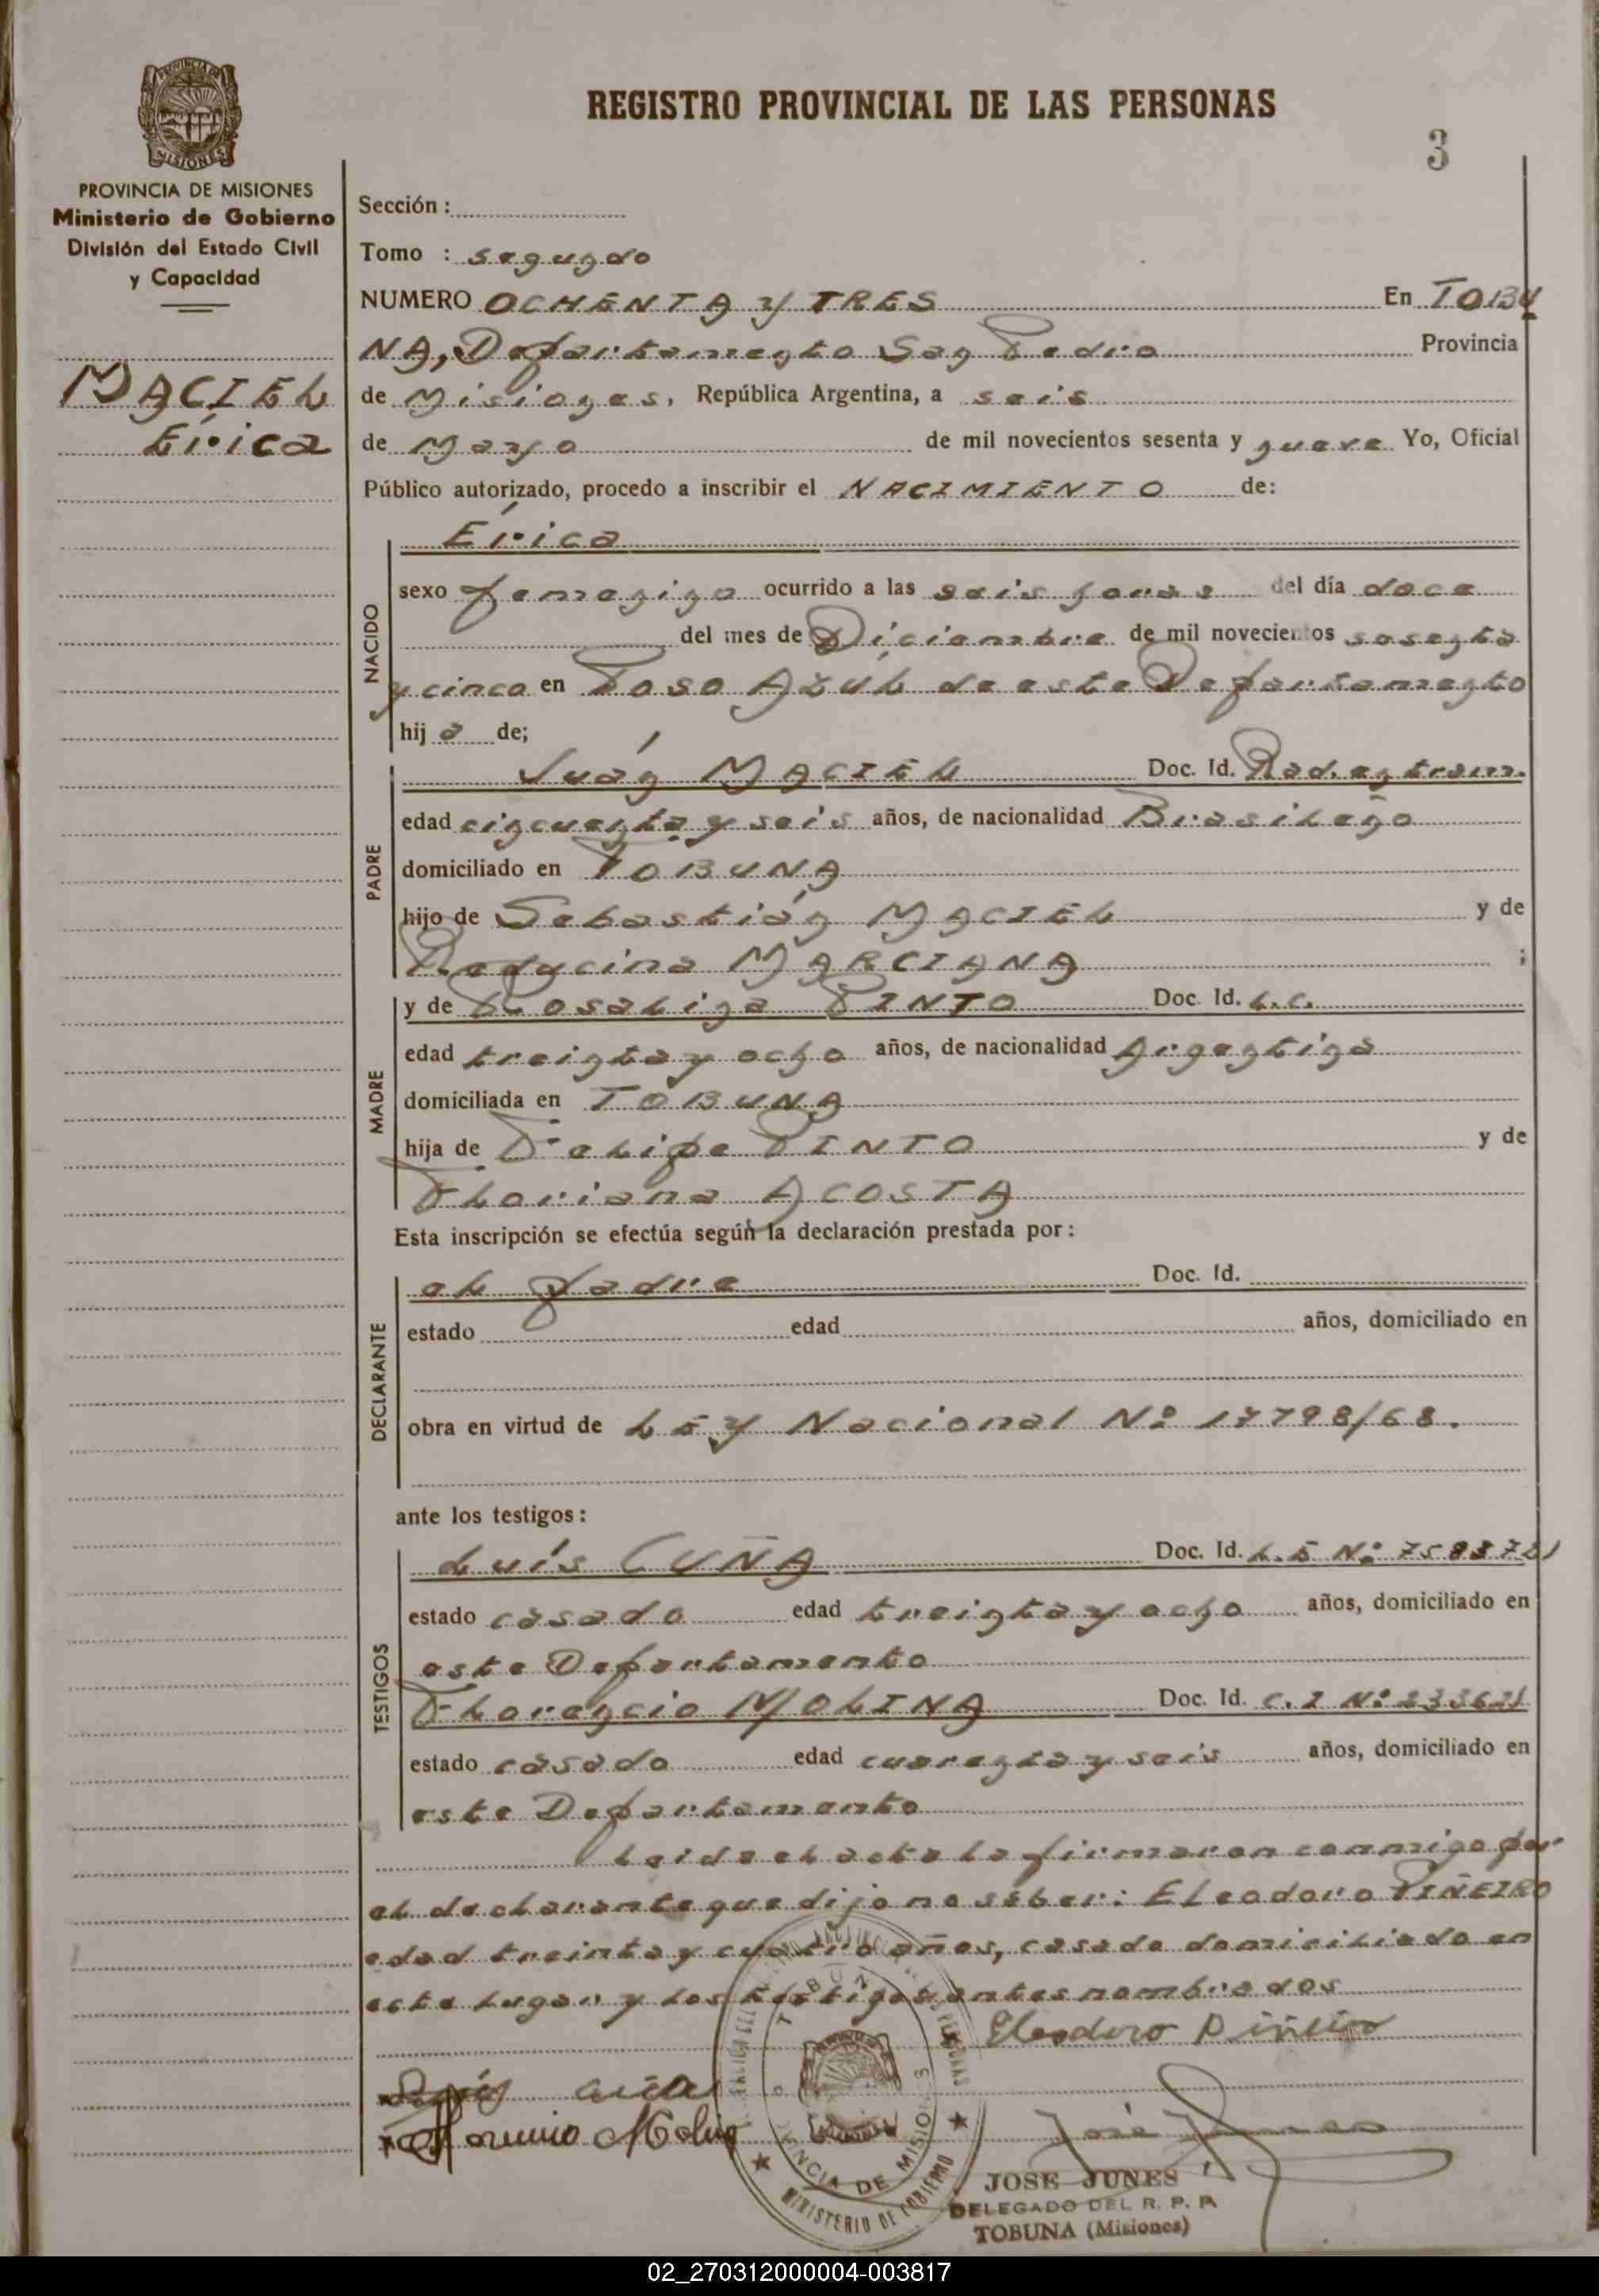 REGISTRO PROVINCIAL DE LAS PERSONAS
3
PROVINCIA DE MISIONES
MISIONES
PROVINCIA DE MISIONES
Ministerio de Gobierno
División del Estado Civil
y Capacidad
MACIEL
Érica
Sección :
Tomo : segundo
NUMERO OCHENTA y TRES En TOBU
NA, Departamento San Pedro Provincia
de Misiones, República Argentina, a seis
de Mayo de mil novecientos sesenta y nueve Yo, Oficial
Público autorizado, procedo a inscribir el NACIMIENTO de:
NACIDO
Érica
sexo femenino ocurrido a las seis horas del día doce
del mes de Diciembre de mil novecientos sesenta
y cinco en Paso AZÚL de este Departamento
hija de;
PADRE
Juán MACIEL Doc. Id. Rad. en tram.
edad cincuenta y seis años, de nacionalidad Brasileño
domiciliado en TOBUNA
hijo de Sebastián MACIEL y de
MARCIANA ;
MADRE
y de Rosalina PINTO Doc. Id. L.C.
edad treinta y ocho años, de nacionalidad Argentina
domiciliada en TOBUNA
hija de Felipe PINTO y de
Floriana ACOSTA
Esta inscripción se efectúa según la declaración prestada por :
DECLARANTE
el padre Doc. Id.
estado edad años, domiciliado en
obra en virtud de LEy Nacional Nº 17798/68.
ante los testigos :
TESTIGOS
Luís CUÑA Doc. Id. L.E Nº
estado casado edad treinta y ocho años, domiciliado en
este Departamento
Florencio MOLINA Doc. Id. C.I Nº
estado casado edad cuarenta y seis años, domiciliado en
este Departamento
Leida el acta la firmaron conmigo por
el declarante que dijo no sáber: Eleodoro PIÑEIRO
edad treinta y cuatro años, casado domiciliado en
este lugar y los testigos antes nombrados
Eleodoro Piñeiro
PROVINCIA DE MISIONES
MINISTERIO DE GOBIERNO
JOSE JUNES
DELEGADO DEL R. P. P.
TOBUNA (Misiones)
02_270312000004-003817